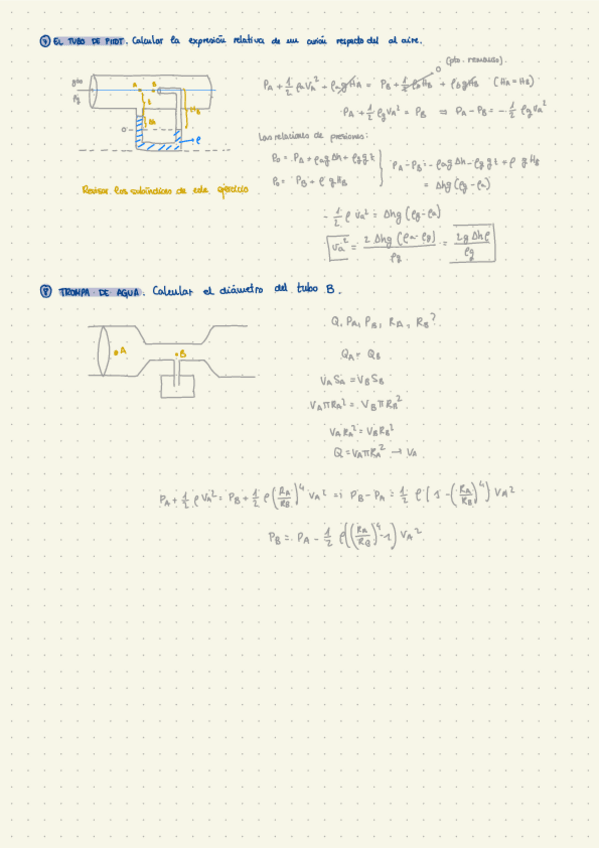 ⑦ EL TUBO DE PITOT. Calcular la expresión relativa de un avión respecto del al aire.
(pto. remanso)
P_A + 1/2 ρ_a V_A² + ρ_a g H_A = P_B + 1/2 ρ_a H_B + ρ_a g H_B (H_A = H_B) 0
gas
ρ_g
A
B
P_A + 1/2 ρ_g V_a² = P_B ⇒ P_A - P_B = - 1/2 ρ_g v_a²
Las relaciones de presiones:
P_0 = P_A + ρ_a g Δh + ρ_g g t
P_0 = P_B + ρ g H_B
P_A - P_B = - ρ_a g Δh - ρ_g g t + ρ g H_B
= Δh g (ρ_g - ρ_a)
Revisar los subíndices de este ejercicio
- 1/2 ρ v_a² = Δh g (ρ_g - ρ_a)
v_a² = 2 Δh g (ρ_a - ρ_g) / ρ_g = 2 g Δh ρ / ρ_g
⑧ TROMPA DE AGUA. Calcular el diámetro del tubo B.
Q, P_A, P_B, R_A, R_B?
A
B
Q_A = Q_B
V_A S_A = V_B S_B
V_A π R_A² = V_B π R_B²
V_A R_A² = V_B R_B²
Q = V_A π R_A² → V_A
P_A + 1/2 ρ V_A² = P_B + 1/2 ρ (R_A/R_B)⁴ V_A² ⇒ P_B - P_A = 1/2 ρ [1 - (R_A/R_B)⁴] V_A²
P_B = P_A - 1/2 ρ ((R_A/R_B)⁴ - 1) V_A²